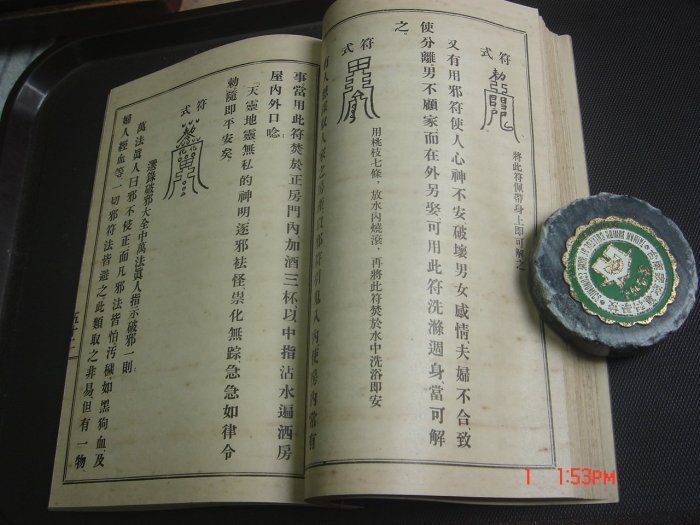 符式
將此符佩帶身上即可解之
又有用邪符使人心神不安破壞男女感情夫婦不合、致
使分離、男不顧家而在外另娶、可用此符洗滌週身當可解
之。
符式
用桃枝七條 放水內燒滾、再將此符焚於水中洗浴即安
入內、使房內常有
事當用此符焚於正房門內加酒三杯以中指沾水遍洒房
屋內外口唸
「天靈地靈無私的神明、逐邪祛怪、祟化無踪、急急如律令
勅隨即平安矣。
符式
選錄破邪大全中萬法眞人指示破邪一則
萬法眞人曰邪不侵正而凡邪法皆怕汚穢如黑狗血、及
婦人經血等、一切邪符法皆避之此類取之非易、但有一物、
1 1:53PM